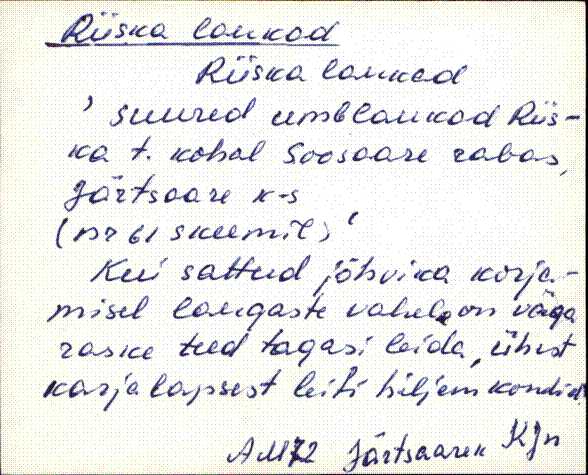 Riiska laukad
Riiska laukad
' suured umblaukad Riis-
ka t. kohal Soosaare rabas,
Järtsaare k-s
(nr 61 skeemil) '
Kui sattud jõhvika korja-
misel laugaste vahele, on väga
raske teed tagasi leida, ühest
karjalapsest leiti hiljem kondid
AM72 Järtsaare k KJn